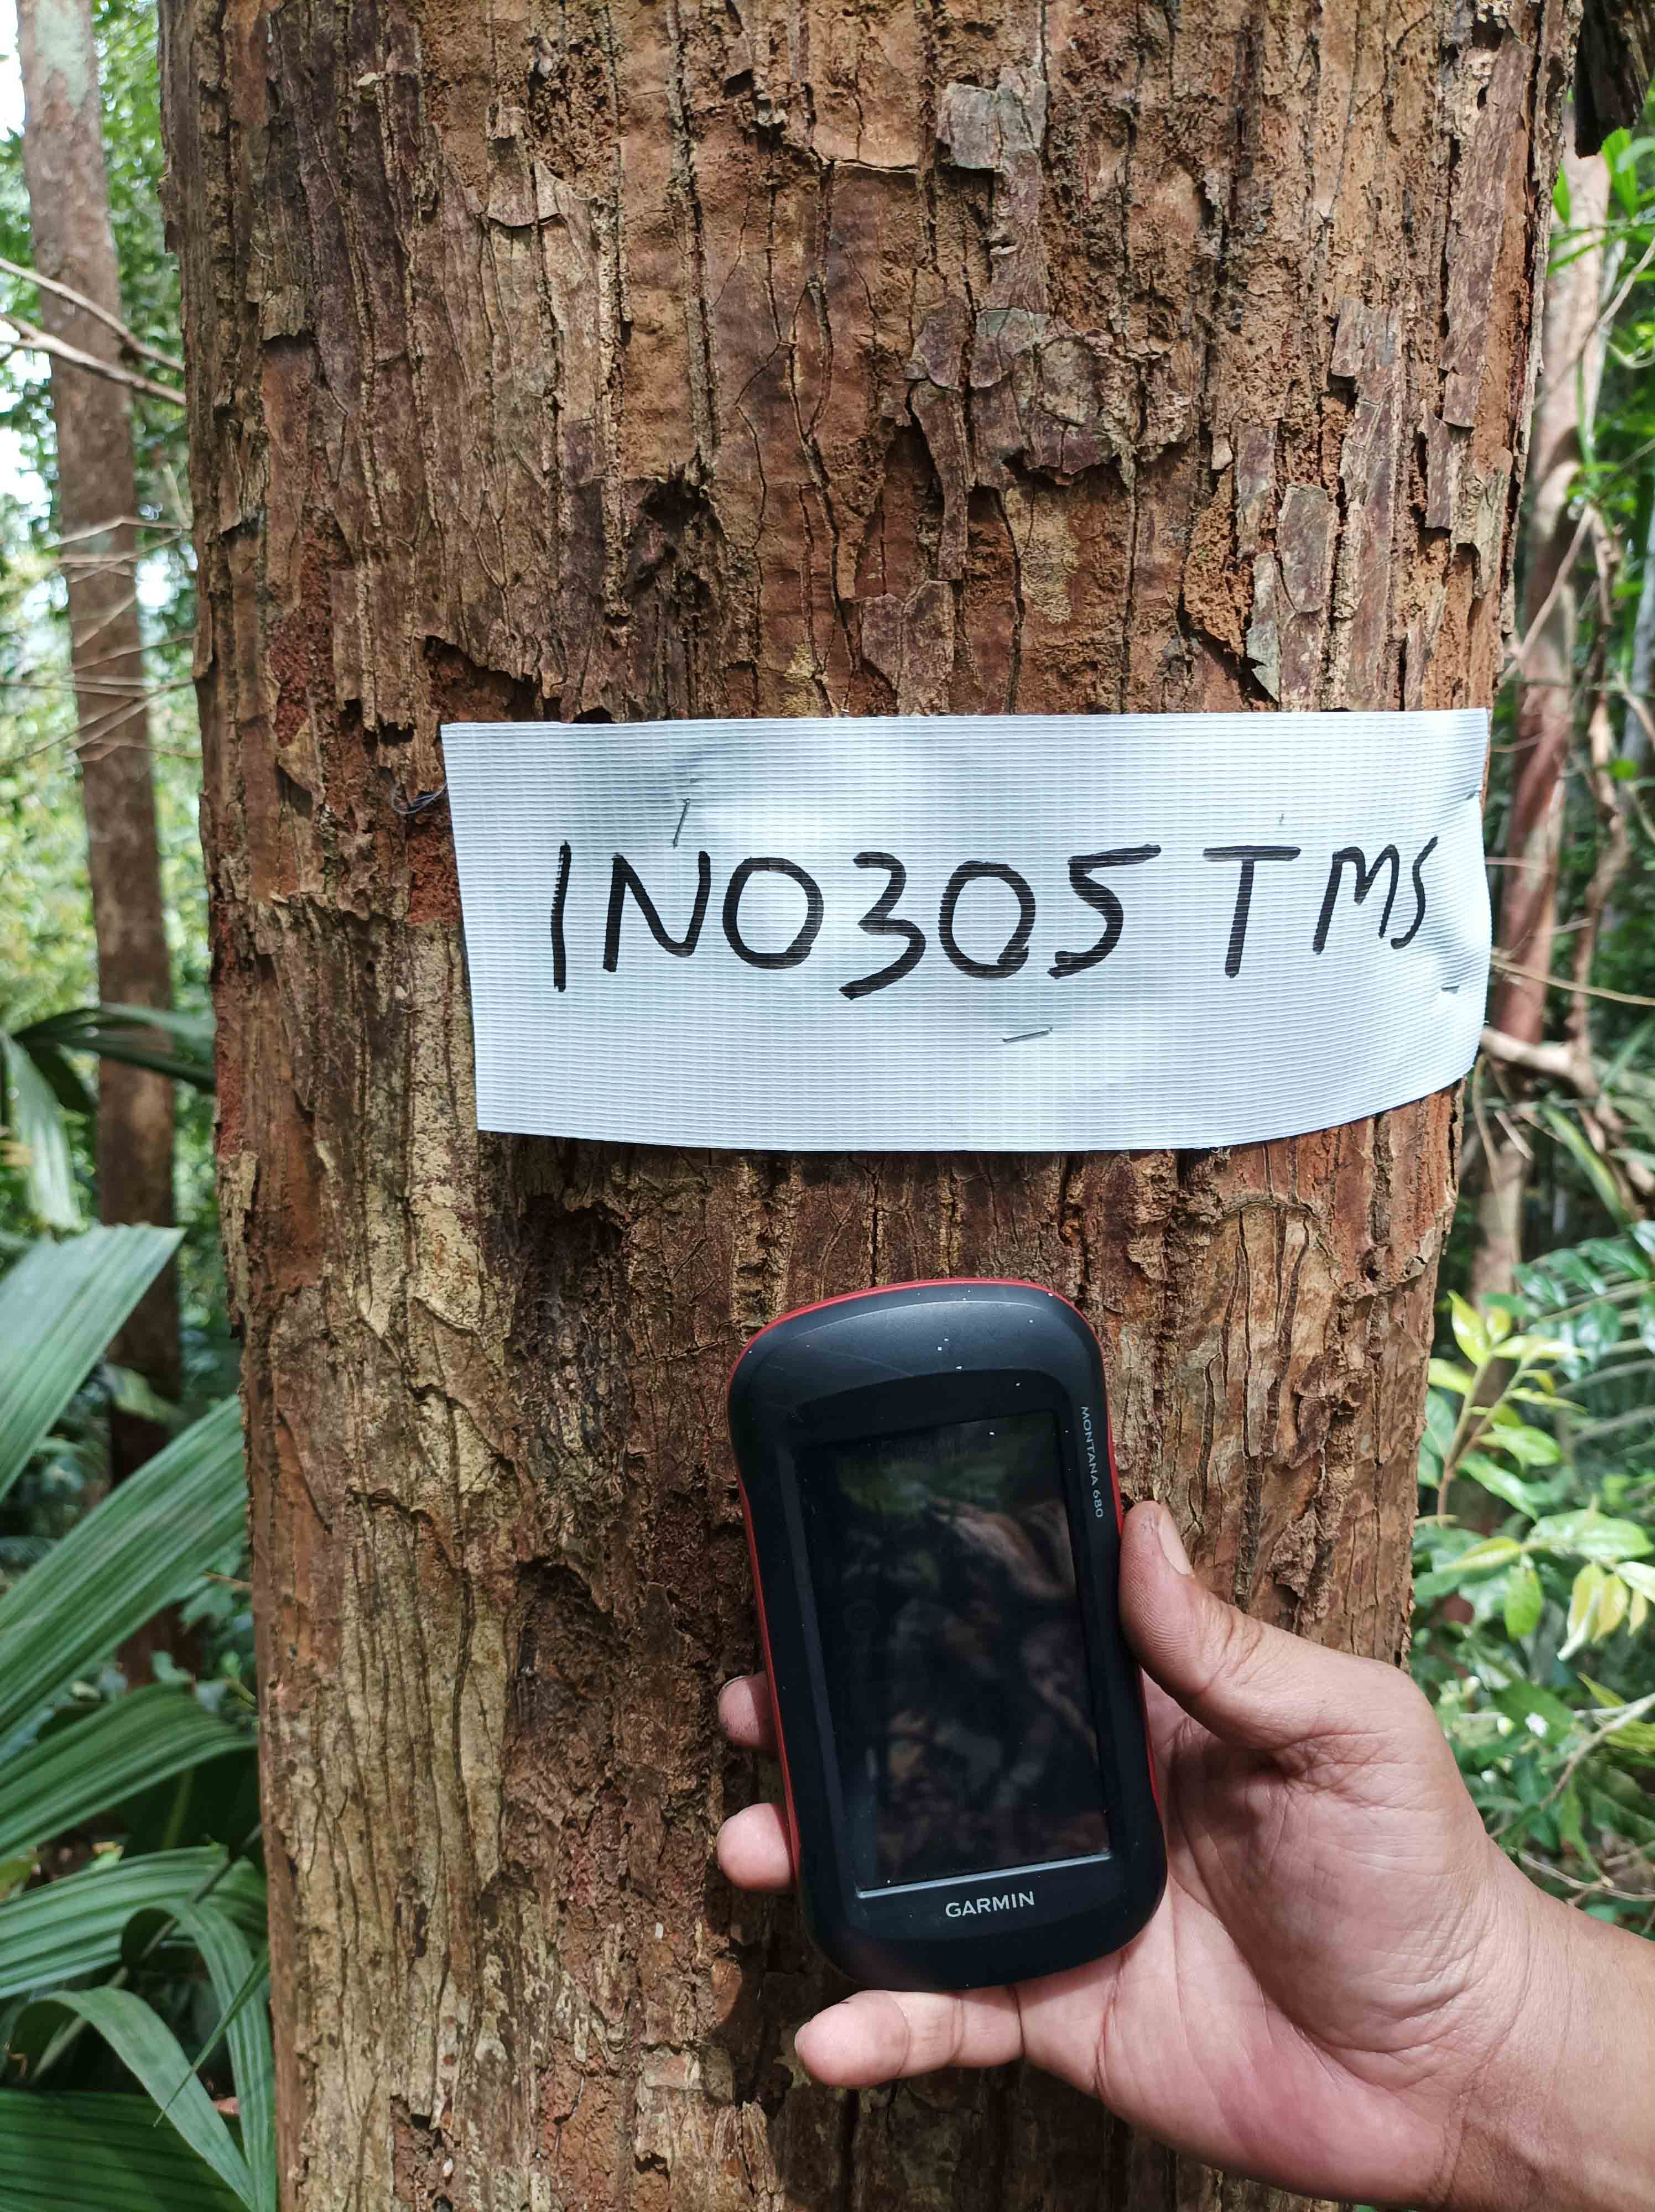 INO305 TMS
MONTANA 680
GARMIN